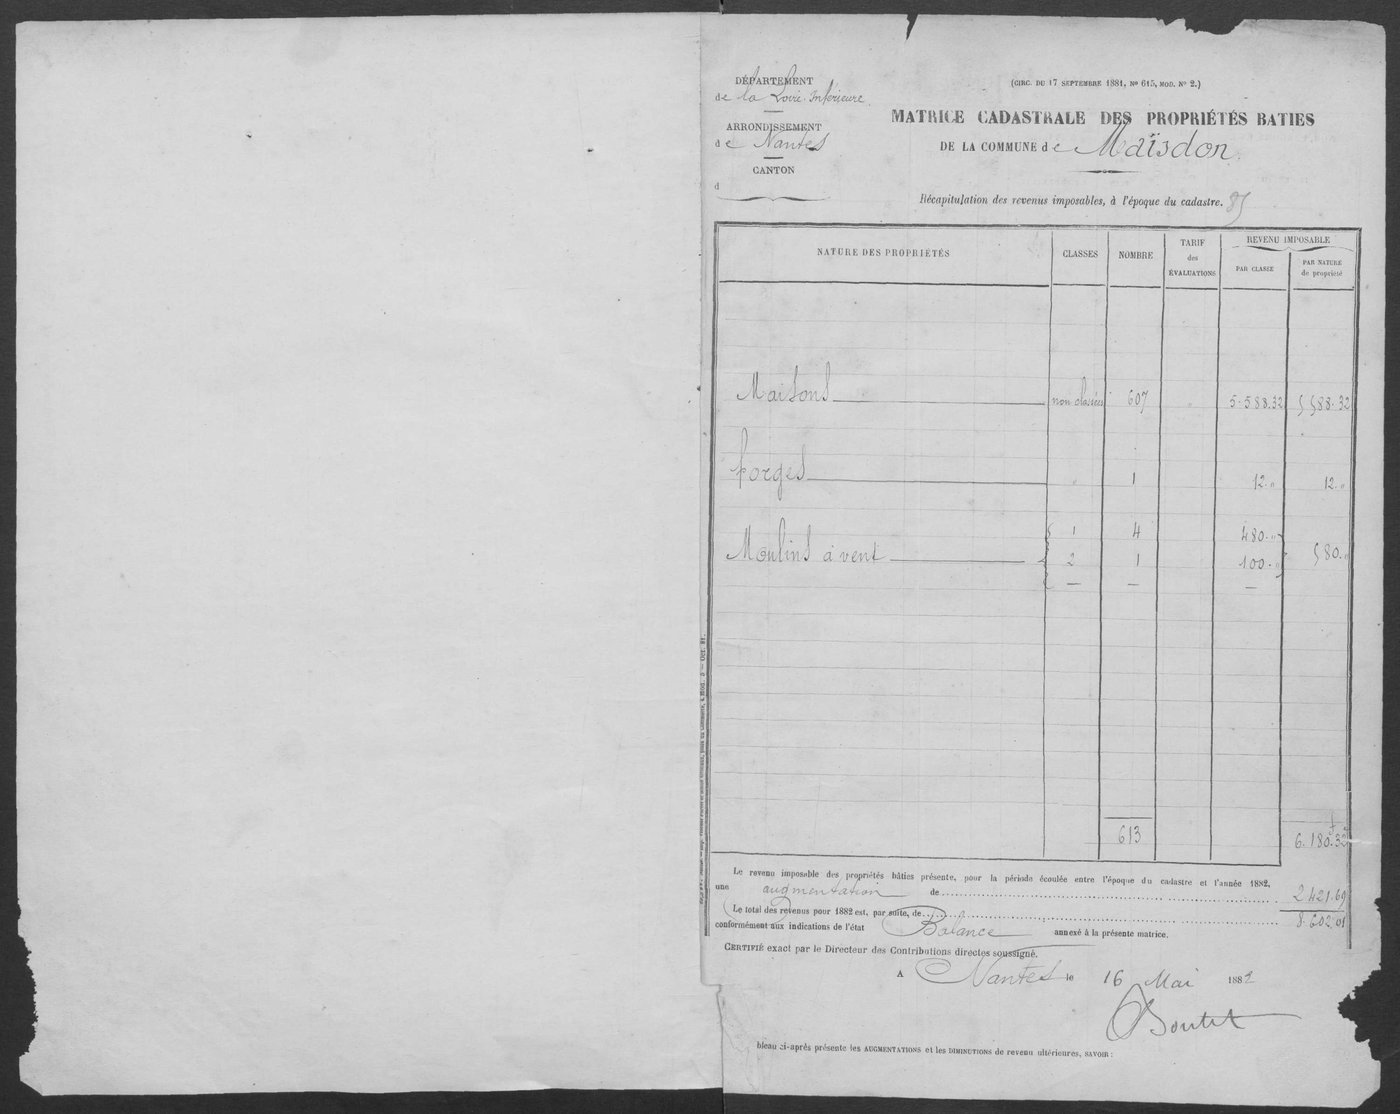 DÉPARTEMENT
de la Loire Inférieure
ARRONDISSEMENT
de Nantes
CANTON
d
(CIRC. DU 17 SEPTEMBRE 1881, Nº 615, MOD. Nº 2.)
MATRICE CADASTRALE DES PROPRIÉTÉS BATIES
DE LA COMMUNE de Maïsdon
Récapitulation des revenus imposables, à l'époque du cadastre.
NATURE DES PROPRIÉTÉS CLASSES NOMBRE TARIF des ÉVALUATIONS REVENU IMPOSABLE
PAR CLASSE PAR NATURE de propriété
Maisons non classées 607 5.588.32 5588.32
Forges " 1 12." 12."
1 4 480."
Moulins à vent 580."
2 1 100."
— — —
613 6.180.32
Le revenu imposable des propriétés bâties présente, pour la période écoulée entre l'époque du cadastre et l'année 1882,
une augmentation de 2421.69
Le total des revenus pour 1882 est, par suite, de 8.602.01
conformément aux indications de l'état Balance annexé à la présente matrice.
CERTIFIÉ exact par le Directeur des Contributions directes soussigné.
A Nantes le 16 Mai 1882
Boutet
bleau ci-après présente les AUGMENTATIONS et les DIMINUTIONS de revenu ultérieures, SAVOIR :